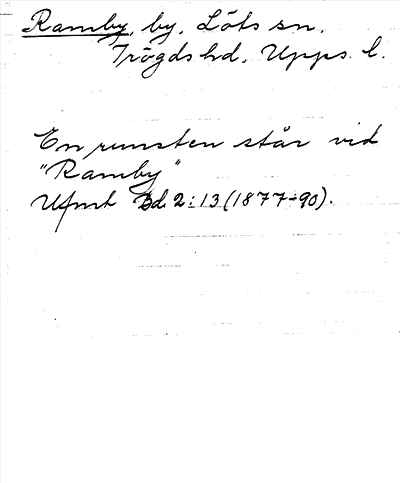 Ramby, by, Löts sn.
Trögds hd, Upps. l.
En runsten står vid
"Ramby"
Ufmt Bd. 2:13 (1877-90).